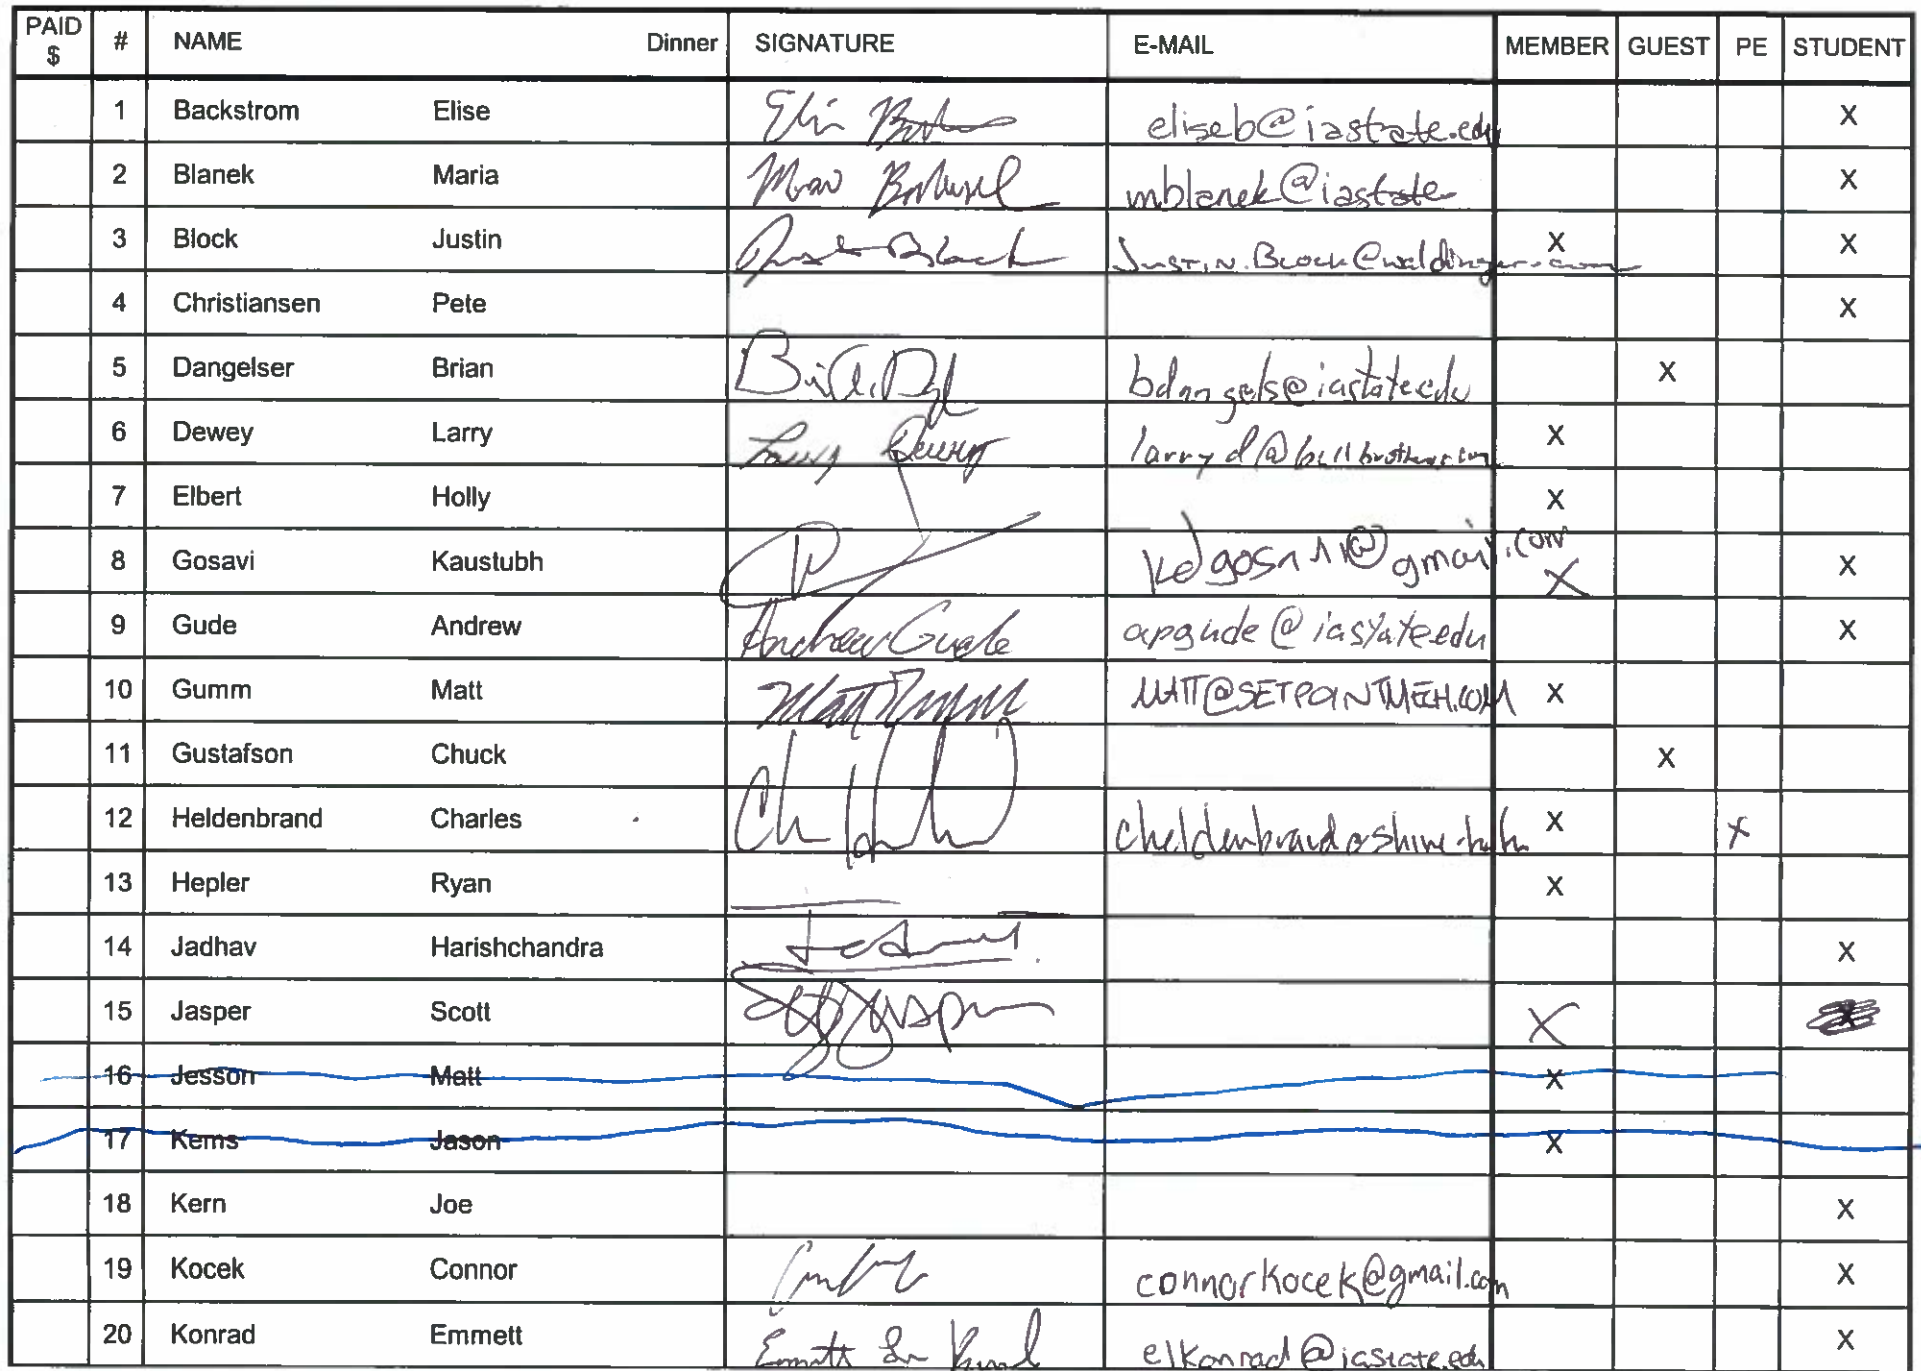 PAID $ # NAME Dinner SIGNATURE E-MAIL MEMBER GUEST PE STUDENT
1 Backstrom Elise eliseb@iastate.edu X
2 Blanek Maria mblanek@iastate X
3 Block Justin Justin Block Justin.Block@waldinger.com X X
4 Christiansen Pete X
5 Dangelser Brian bdangels@iastate.edu X
6 Dewey Larry Larry Dewey larryd@bellbrothers.com X
7 Elbert Holly X
8 Gosavi Kaustubh @gmail.com X X
9 Gude Andrew Andrew Gude apgude@iastate.edu X
10 Gumm Matt Matt Gumm MATT@SETPOINTMECH.COM X
11 Gustafson Chuck X
12 Heldenbrand Charles X X
13 Hepler Ryan X
14 Jadhav Harishchandra X
15 Jasper Scott Scott Jasper X X
16 Jesson Matt X
17 Kems Jason X
18 Kern Joe X
19 Kocek Connor connorkocek@gmail.com X
20 Konrad Emmett Emmett elkonrad@iastate.edu X